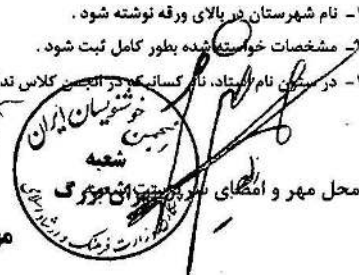 ۱- نام شهرستان در بالای ورقه نوشته شود .
- مشخصات خواسته شده بطور کامل ثبت شود .
- در ستون نام استاد، نام کسانیکه در انجمن کلاس ند
انجمن خوشنویسان ایران
شعبه
محل مهر و امضای سرپرست شعبه
وزارت فرهنگ و ارشاد اسلامی